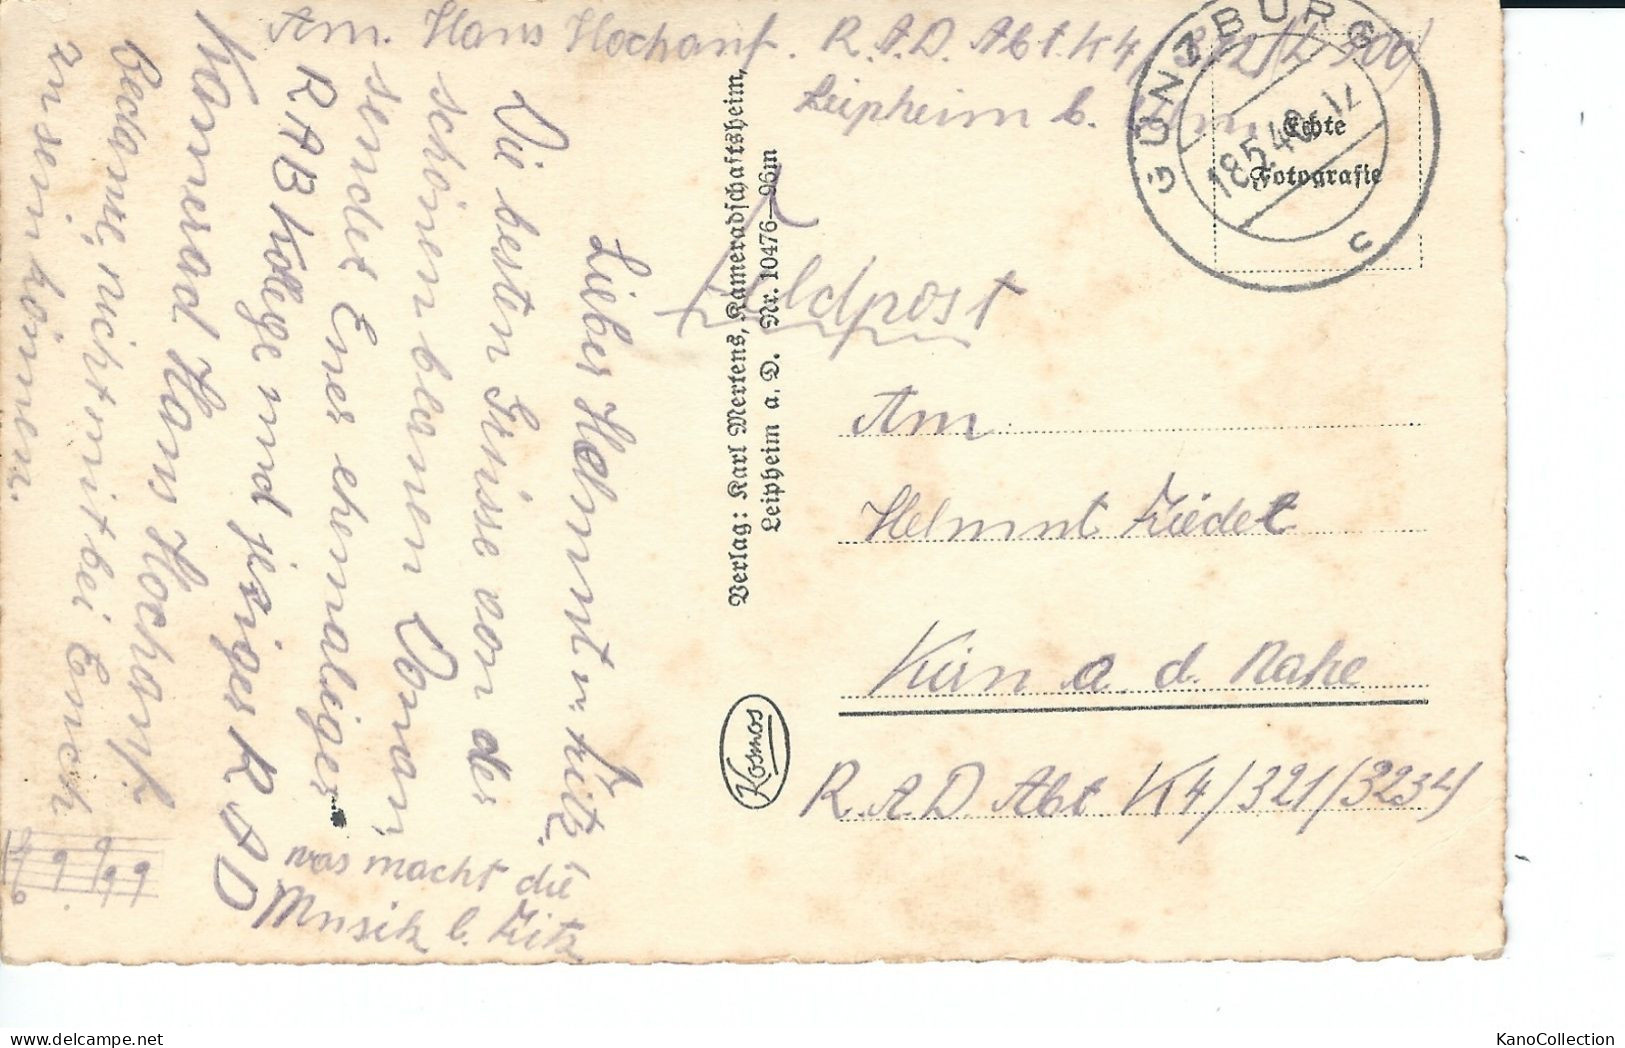 Am. Hans Hochauf. R.A.D. Abt. K4/
Leipheim b. Ulm
GÜNZBURG
18.5.40.-12
c
Echte
Fotografie
Feldpost
An
Helmut
Kirn a. d. Nahe
R.A.D. Abt K4/321/3234)
Verlag: Karl Mertens, Kameradschaftsheim,
Leipheim a. D. Nr. 10476—96m
Kosmos
Lieber Helmut u. Fritz!
Die besten Grüsse von der
schönen blauen Donau,
sendet Euer ehemaliger
RAB Kollege und jeziger RAD
Kamerad Hans Hochauf.
Bedaure, nicht mit bei Euch
zu sein können.
was macht die
Musik b. Fritz